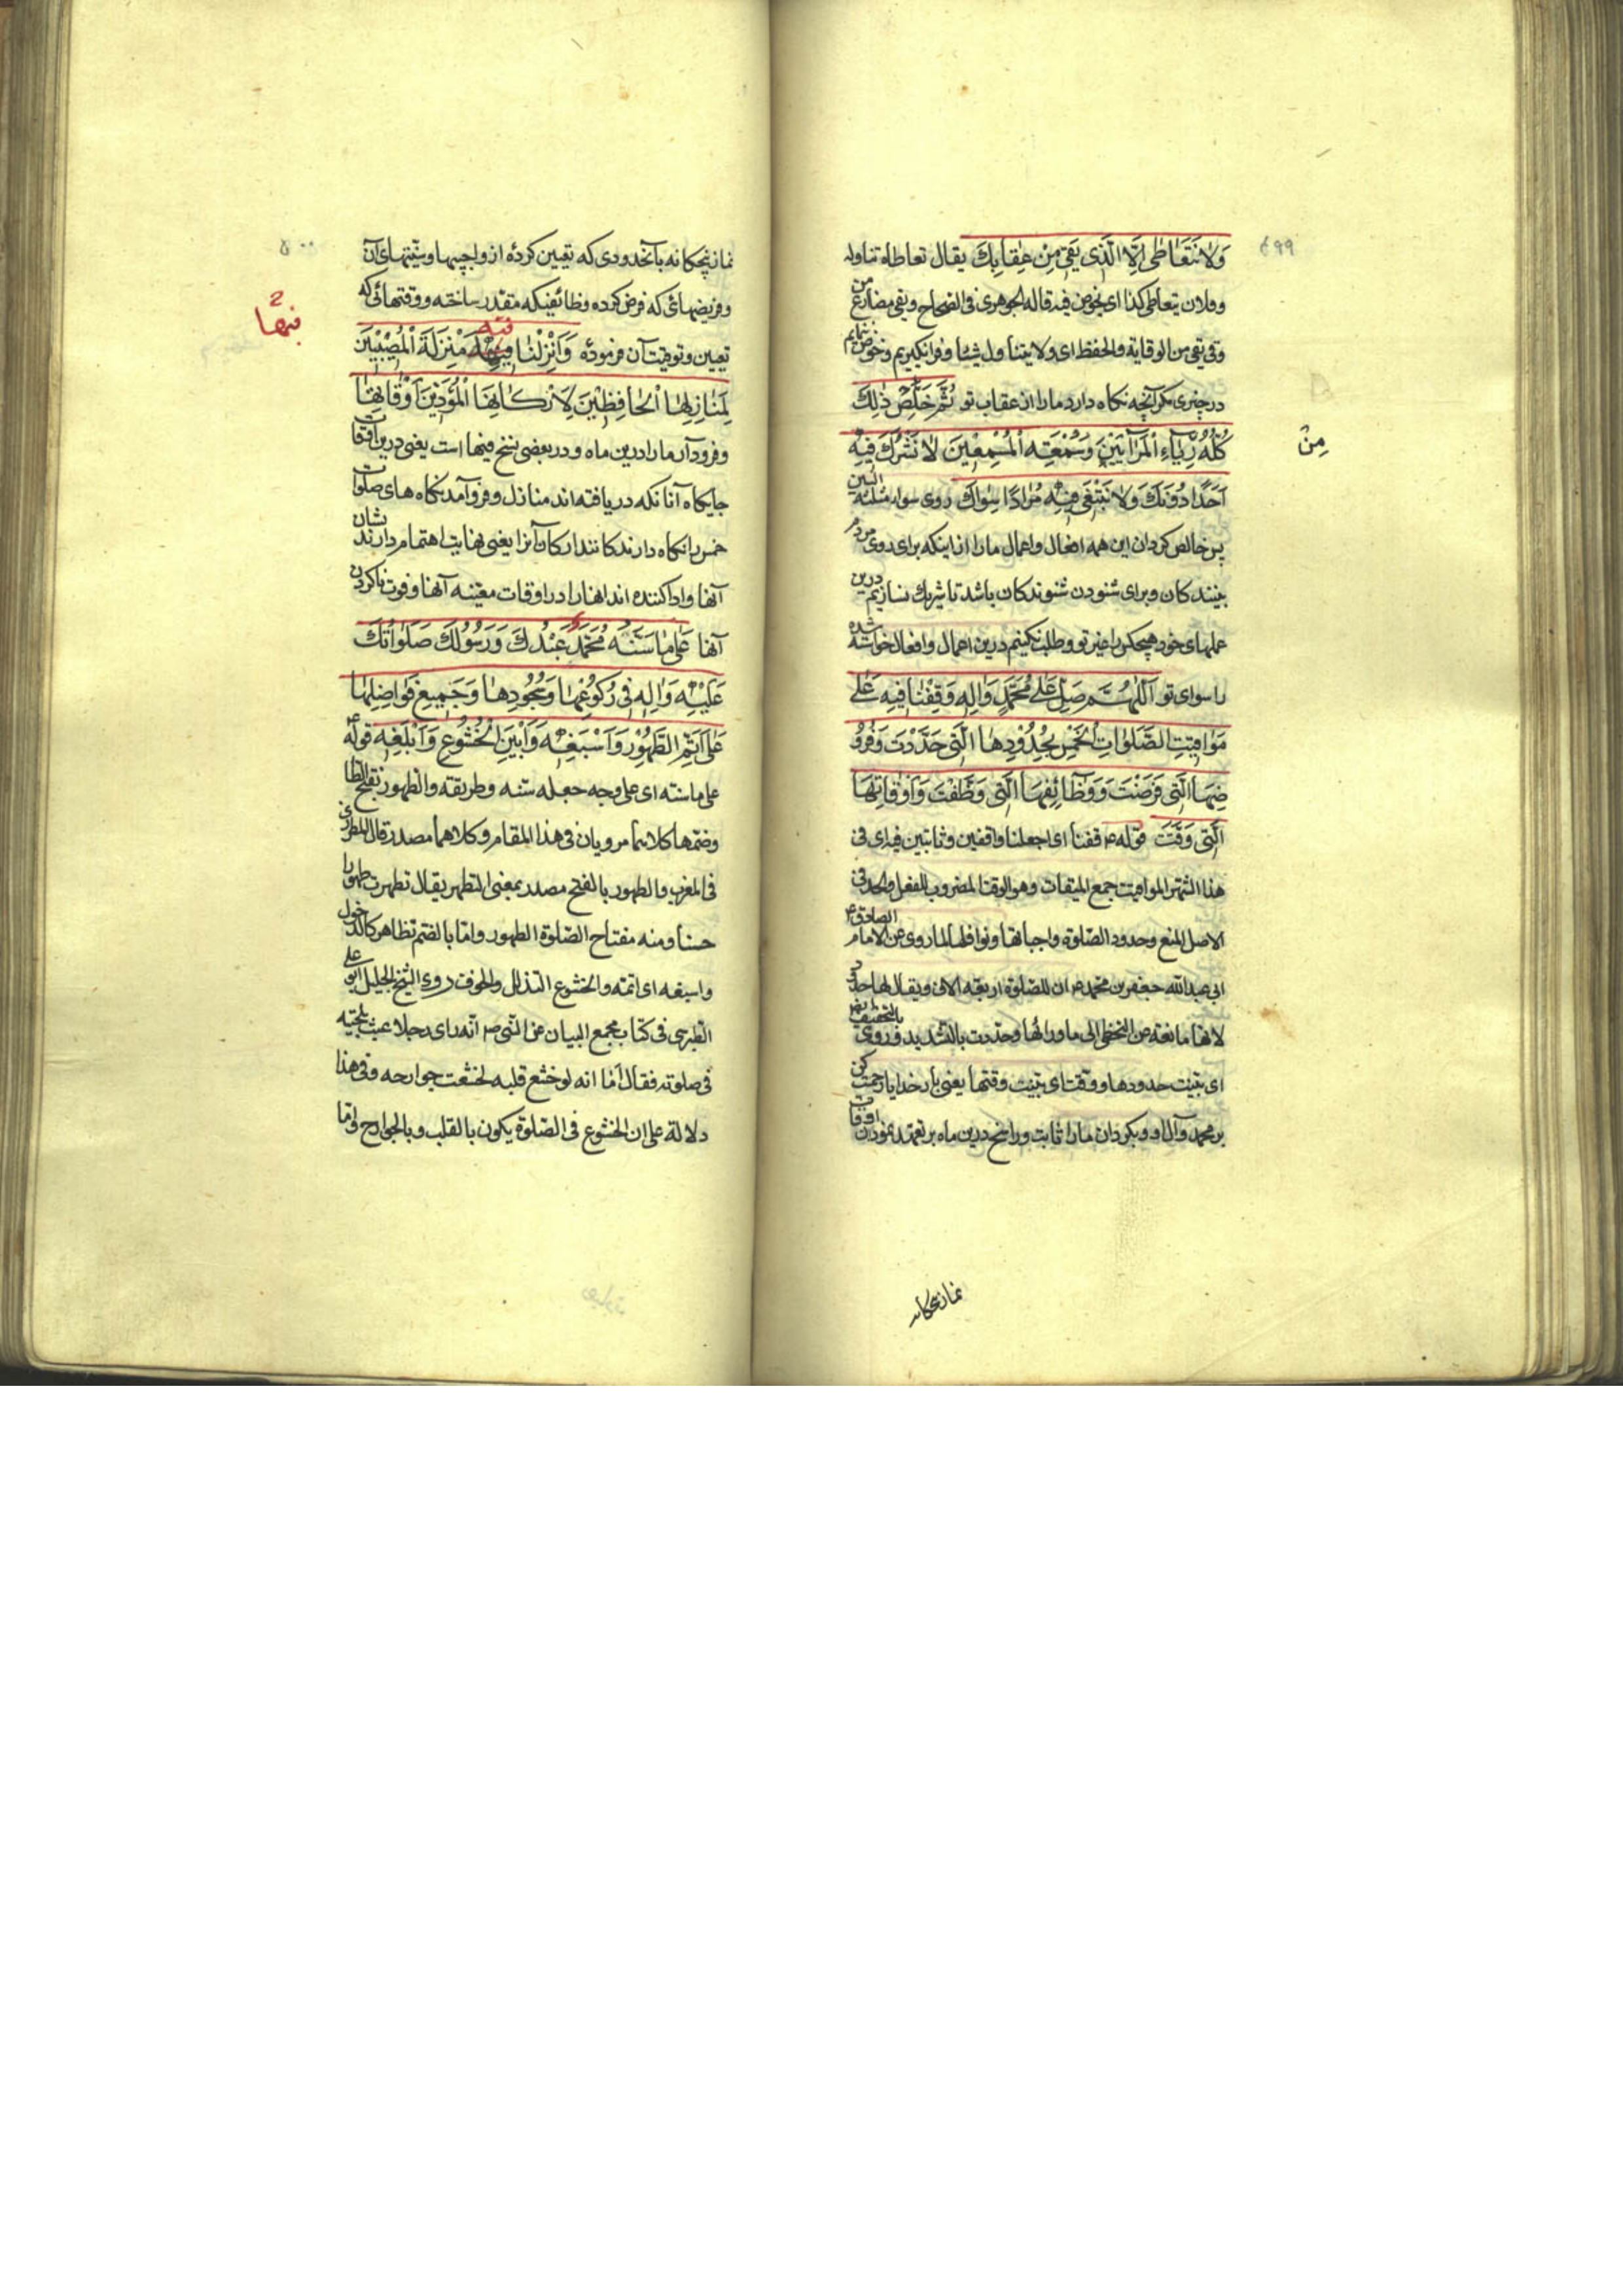 ۴۹۹
وَلَا نَتَعَاطٰی اِلَّا الَّذی یَقی مِنْ عِقابِكَ یقال تعاطاه تناوله
وفلان یتعاطی کذا ای یخوض فیه قاله الجوهری فی الصحاح ویقی مضارع من
وقی یقی من الوقایة والحفظ ای ولا یتناول شیئا و فرا نکیریم وخوض ننمایم
در چیزی مکر آنچه نکاه دارد مارا از عقاب تو ثُمَّ خَلِّصْ ذٰلِكَ
كُلَّهُ مِنْ رِیٰٓاءِ الْمُرٰآئینَ وَسُمْعَةِ الْمُسْمِعینَ لٰا نَشْرَكُ فیهِ
من
اَحَدًا دُونَكَ وَلا نَبْتَغی فیهِ مُرٰادًا سِوٰاكَ روی سواه مثلثة السین
پس خالص کردان این همه افعال واعمال مارا از اینکه برای روی مردم
بینندکان وبرای شنودن شنوندکان باشد تا شریك نسازیم درین
عملهای خود هیچکس را غیر تو وطلب نکنیم درین اعمال وافعال خواسته شده
را سوای تو اَللّٰهُمَّ صَلِّ عَلٰی مُحَمَّدٍ وَاٰلِهِ وَقِفْنٰا فیهِ عَلٰی
مَوٰاقیتِ الصَّلَوٰاتِ الْخَمْسِ بِحُدُودِهَا الَّتی حَدَّدْتَ وَفُرُو
ضِهَا الَّتی فَرَضْتَ وَوَظٰآئِفِهَا الَّتی وَظَّفْتَ وَاَوْقٰاتِهَا
الَّتی وَقَّتَّ قوله ع قفنا ای اجعلنا واقفین وثابتین فیه ای فی
هذا الشهر المواقیت جمع المیقات وهو الوقت المضروب للفعل والحد فی
الاصل المنع وحدود الصلوة واجباتها ونوافلها لما روی عن الامام الصادق ع
ابی عبدالله جعفر بن محمد ع ان للصلوة اربعة الاف ویقال لها حدود
لانها مانعة من التخطی الی ماورائها وحددت بالتشدید وروی بالتخفیف
ای بینت حدودها ووقت ای بینت وقتها یعنی بار خدایا رحمت کن
بر محمد وآل او وبکردان مارا ثابت وراسخ درین ماه بر تعهد نمودن اوقات
نماز پنجکانه
۵۰۰
نماز پنجکانه بآنحدودی که تعیین کردهٔ از واجبیها وسنّتیهای آن
وفریضهائی که فرض کرده وظائفیکه مقدر ساخته ووقتهائی که
تعیین وتوقیت آن فرمودهٔ وَاَنْزِلْنٰا فیهِ مَنْزِلَةَ الْمُصیبینَ
فیها
لِمَنٰازِلِهَا الْحٰافِظینَ لِاَرْكٰانِهَا الْمُؤَدّینَ اَوْقٰاتِهٰا
وفرود آر مارا درین ماه ودر بعضی نسخ فیها است یعنی درین اوقات
جایکاه آنانکه دریافته اند منازل وفروآمدنکاه های صلوات
خمس را نکاه دارندکانند ارکان آنرا یعنی نهایت اهتمام دارند بشان
آنها وادا کننده اند انها را در اوقات معینه آنها وفوت ناکردن
آنها عَلٰی مٰا سَنَّهُ مُحَمَّدٌ عَبْدُكَ وَرَسُولُكَ صَلَوٰاتُكَ
عَلَیْهِ وَاٰلِهِ فی رُكُوعِهٰا وَسُجُودِهٰا وَجَمیعِ فَوٰاضِلِهٰا
عَلٰی اَتَمِّ الطَّهُورِ وَاَسْبَغِهِ وَاَبْیَنِ الْخُشُوعِ وَاَبْلَغِهِ قوله ع
علی ماسنه ای علی وجه جعله سنه وطریقته والطهور بفتح الطا
وضمها کلاهما مرویان فی هذا المقام وکلاهما مصدر قال المطرزی
فی المغرب والطهور بالفتح مصدر بمعنی التطهر یقال تطهرت طهورا
حسنا ومنه مفتاح الصلوة الطهور واما بالضم تظاهر کالدخول
واسبغه ای اتمه والخشوع التذلل والخوف روی الشیخ الجلیل ابو علی
الطبرسی فی کتاب مجمع البیان عن النبی ص انه رای رجلا عبث بلحیته
فی صلوته فقال اما انه لو خشع قلبه لخشعت جوارحه وفی هذا
دلالة علی ان الخشوع فی الصلوة یکون بالقلب وبالجوارح واما